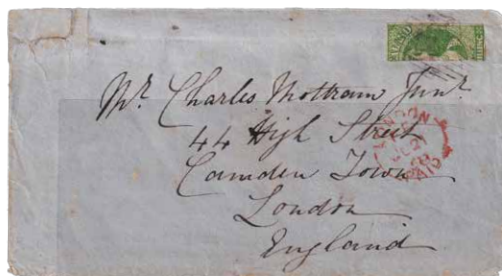 Mr. Charles Mottram Junr.
44 High Street
Camden Town
London
England
LONDON
PAID